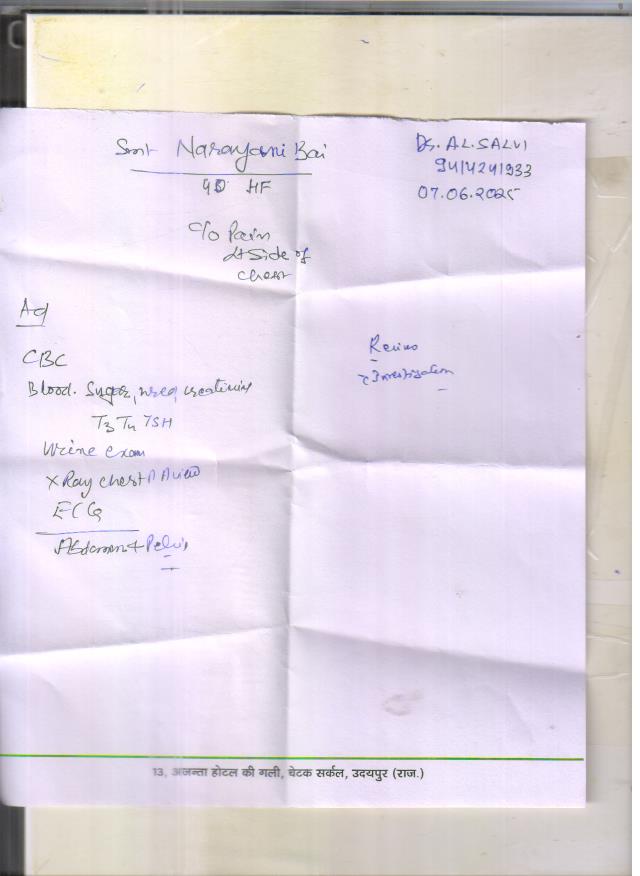 Smt Narayani Bai
Dr. A.L. SALVI
9414241933
07.06.2025
HF
c/o Pain
Lt Side of
chest
Ad
CBC
Blood. Sugar, urea, creatinin
T3 T4 TSH
Urine exam
X Ray chest P A view
ECG
Abdomen + Pelvis
Review
c Investigation
13, अजन्ता होटल की गली, चेटक सर्कल, उदयपुर (राज.)